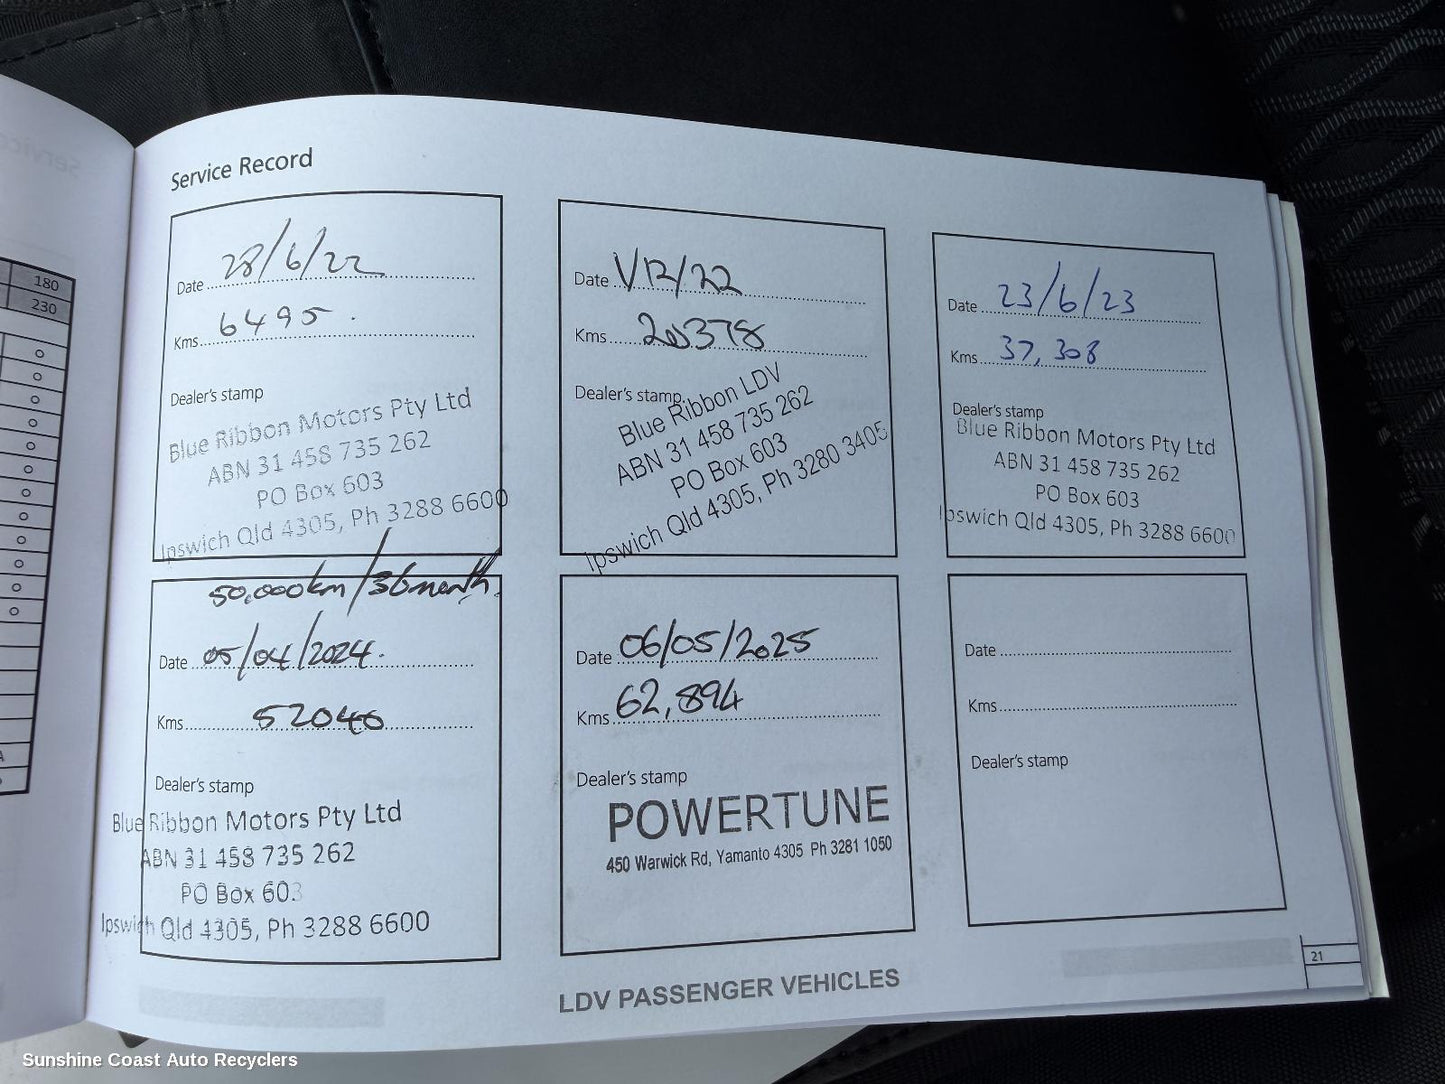 180
230
Service Record
Date 28/6/22
Kms 6495
Dealer's stamp
Blue Ribbon Motors Pty Ltd
ABN 31 458 735 262
PO Box 603
Ipswich Qld 4305, Ph 3288 6600
Date 1/12/22
Kms 20378
Dealer's stamp
Blue Ribbon LDV
ABN 31 458 735 262
PO Box 603
Ipswich Qld 4305, Ph 3280 3405
Date 23/6/23
Kms 37,308
Dealer's stamp
Blue Ribbon Motors Pty Ltd
ABN 31 458 735 262
PO Box 603
Ipswich Qld 4305, Ph 3288 6600
50,000km/36month
Date 05/04/2024
Kms 52040
Dealer's stamp
Blue Ribbon Motors Pty Ltd
ABN 31 458 735 262
PO Box 603
Ipswich Qld 4305, Ph 3288 6600
Date 06/05/2025
Kms 62,894
Dealer's stamp
POWERTUNE
450 Warwick Rd, Yamanto 4305 Ph 3281 1050
Date
Kms
Dealer's stamp
LDV PASSENGER VEHICLES
21
Sunshine Coast Auto Recyclers